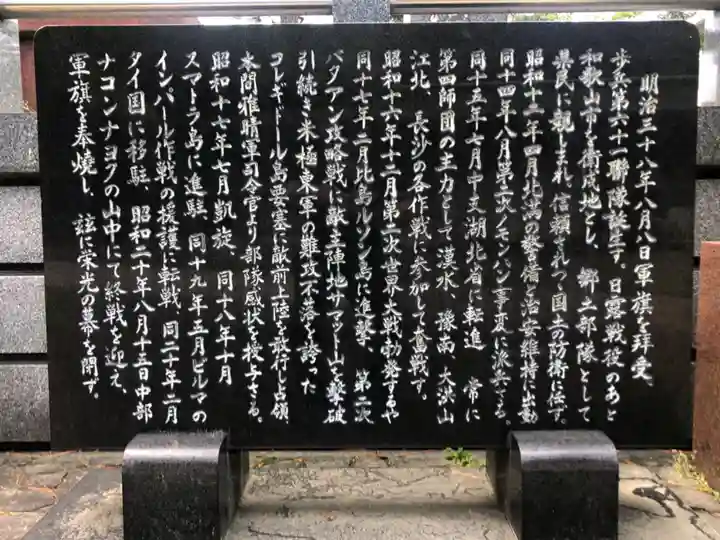 明治三十八年八月八日軍旗を拝受、
歩兵第六十一聯隊誕生す。日露戦役のあと
和歌山市を衛戍地とし、郷土部隊として
県民に親しまれ信頼されつつ国土の防衛に任ず。
昭和十二年四月北満の警備と治安維持に出動
同十四年八月第二次ノモンハン事変に派兵さる。
同十五年七月中支湖北省に転進 常に
第四師団の主力として漢水、豫南、大洪山
江北、長沙の各作戦に参加して奮戦す。
昭和十六年十二月第二次世界大戦勃発するや
同十七年二月比島ルソン島に進撃、第二次
バタアン攻略戦に敵主陣地サマット山を撃破
引続き米極東軍の難攻不落を誇った
コレギドール島要塞に敵前上陸を敢行し占領
本間雅晴軍司令官より部隊感状を授与さる。
昭和十七年七月凱旋、同十八年十月
スマトラ島に進駐、同十九年五月ビルマの
インパール作戦の援護に転戦、同二十年二月
タイ国に移駐、昭和二十年八月十五日中部
ナコンナヨクの山中にて終戦を迎え、
軍旗を奉焼し、玆に栄光の幕を閉ず。